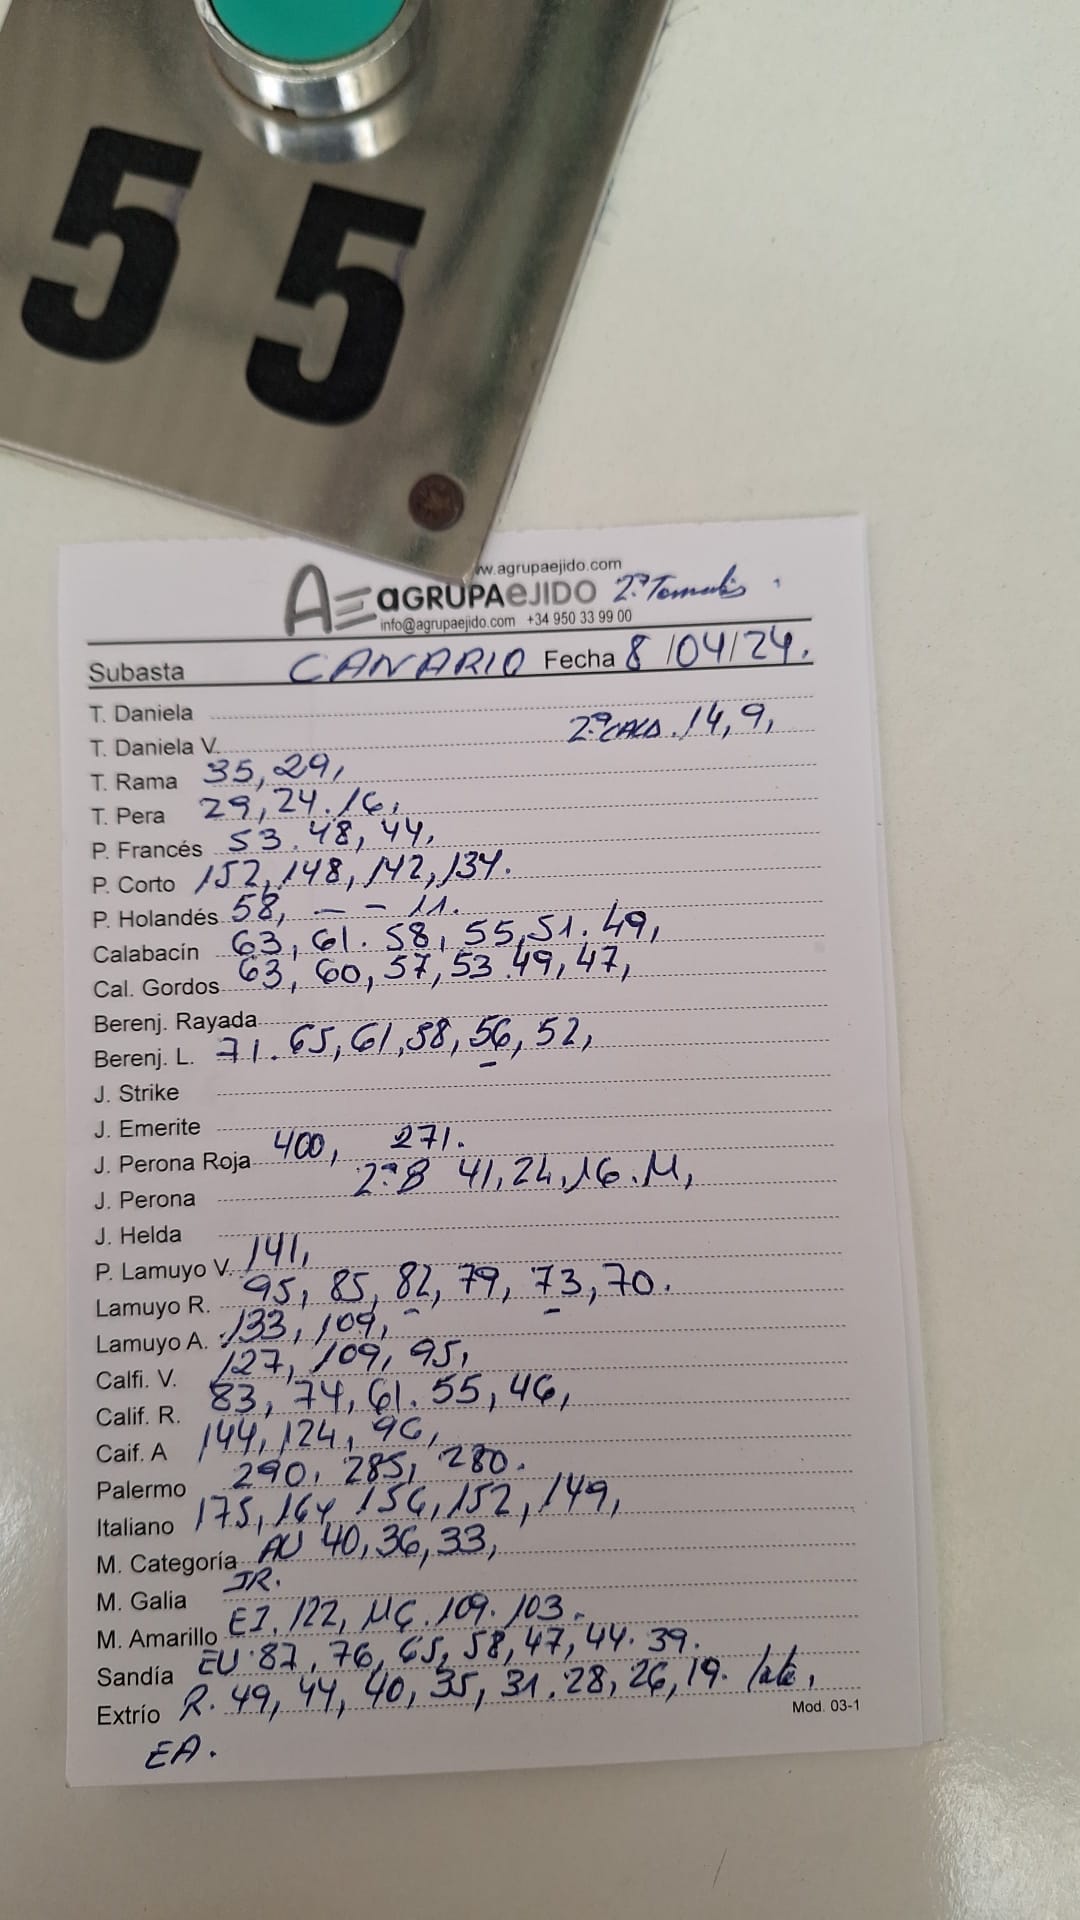 55
www.agrupaejido.com
AE aGRUPAeJIDO 2ª
info@agrupaejido.com +34 950 33 99 00
Subasta CANARIO Fecha 8/04/24.
T. Daniela
T. Daniela V. 2ª CALA. 14, 9,
T. Rama 35, 29,
T. Pera 29, 24. 16,
P. Francés 53. 48, 44,
P. Corto 152, 148, 142, 134.
P. Holandés 58, - - 11.
Calabacín 63, 61. 58, 55, 51. 49,
Cal. Gordos 63, 60, 57, 53. 49, 47,
Berenj. Rayada
Berenj. L. 71. 65, 61, 58, 56, 52,
J. Strike
J. Emerite
J. Perona Roja 400, 271.
J. Perona 2ª B 41, 24, 16. 11,
J. Helda
P. Lamuyo V. 141,
Lamuyo R. 95, 85, 82, 79, 73, 70.
Lamuyo A. 133, 109,
Calfi. V. 127, 109, 95,
Calif. R. 83, 74, 61. 55, 46,
Caif. A 144, 124, 96,
Palermo 290, 285, 280.
Italiano 175, 164 156, 152, 149,
M. Categoría AU 40, 36, 33,
M. Galia JR.
M. Amarillo EI. 122, 116. 109. 103.
Sandía EU 87, 76, 65, 58, 47, 44. 39.
Extrío R. 49, 44, 40, 35, 31. 28, 26, 19.
Mod. 03-1
EA.